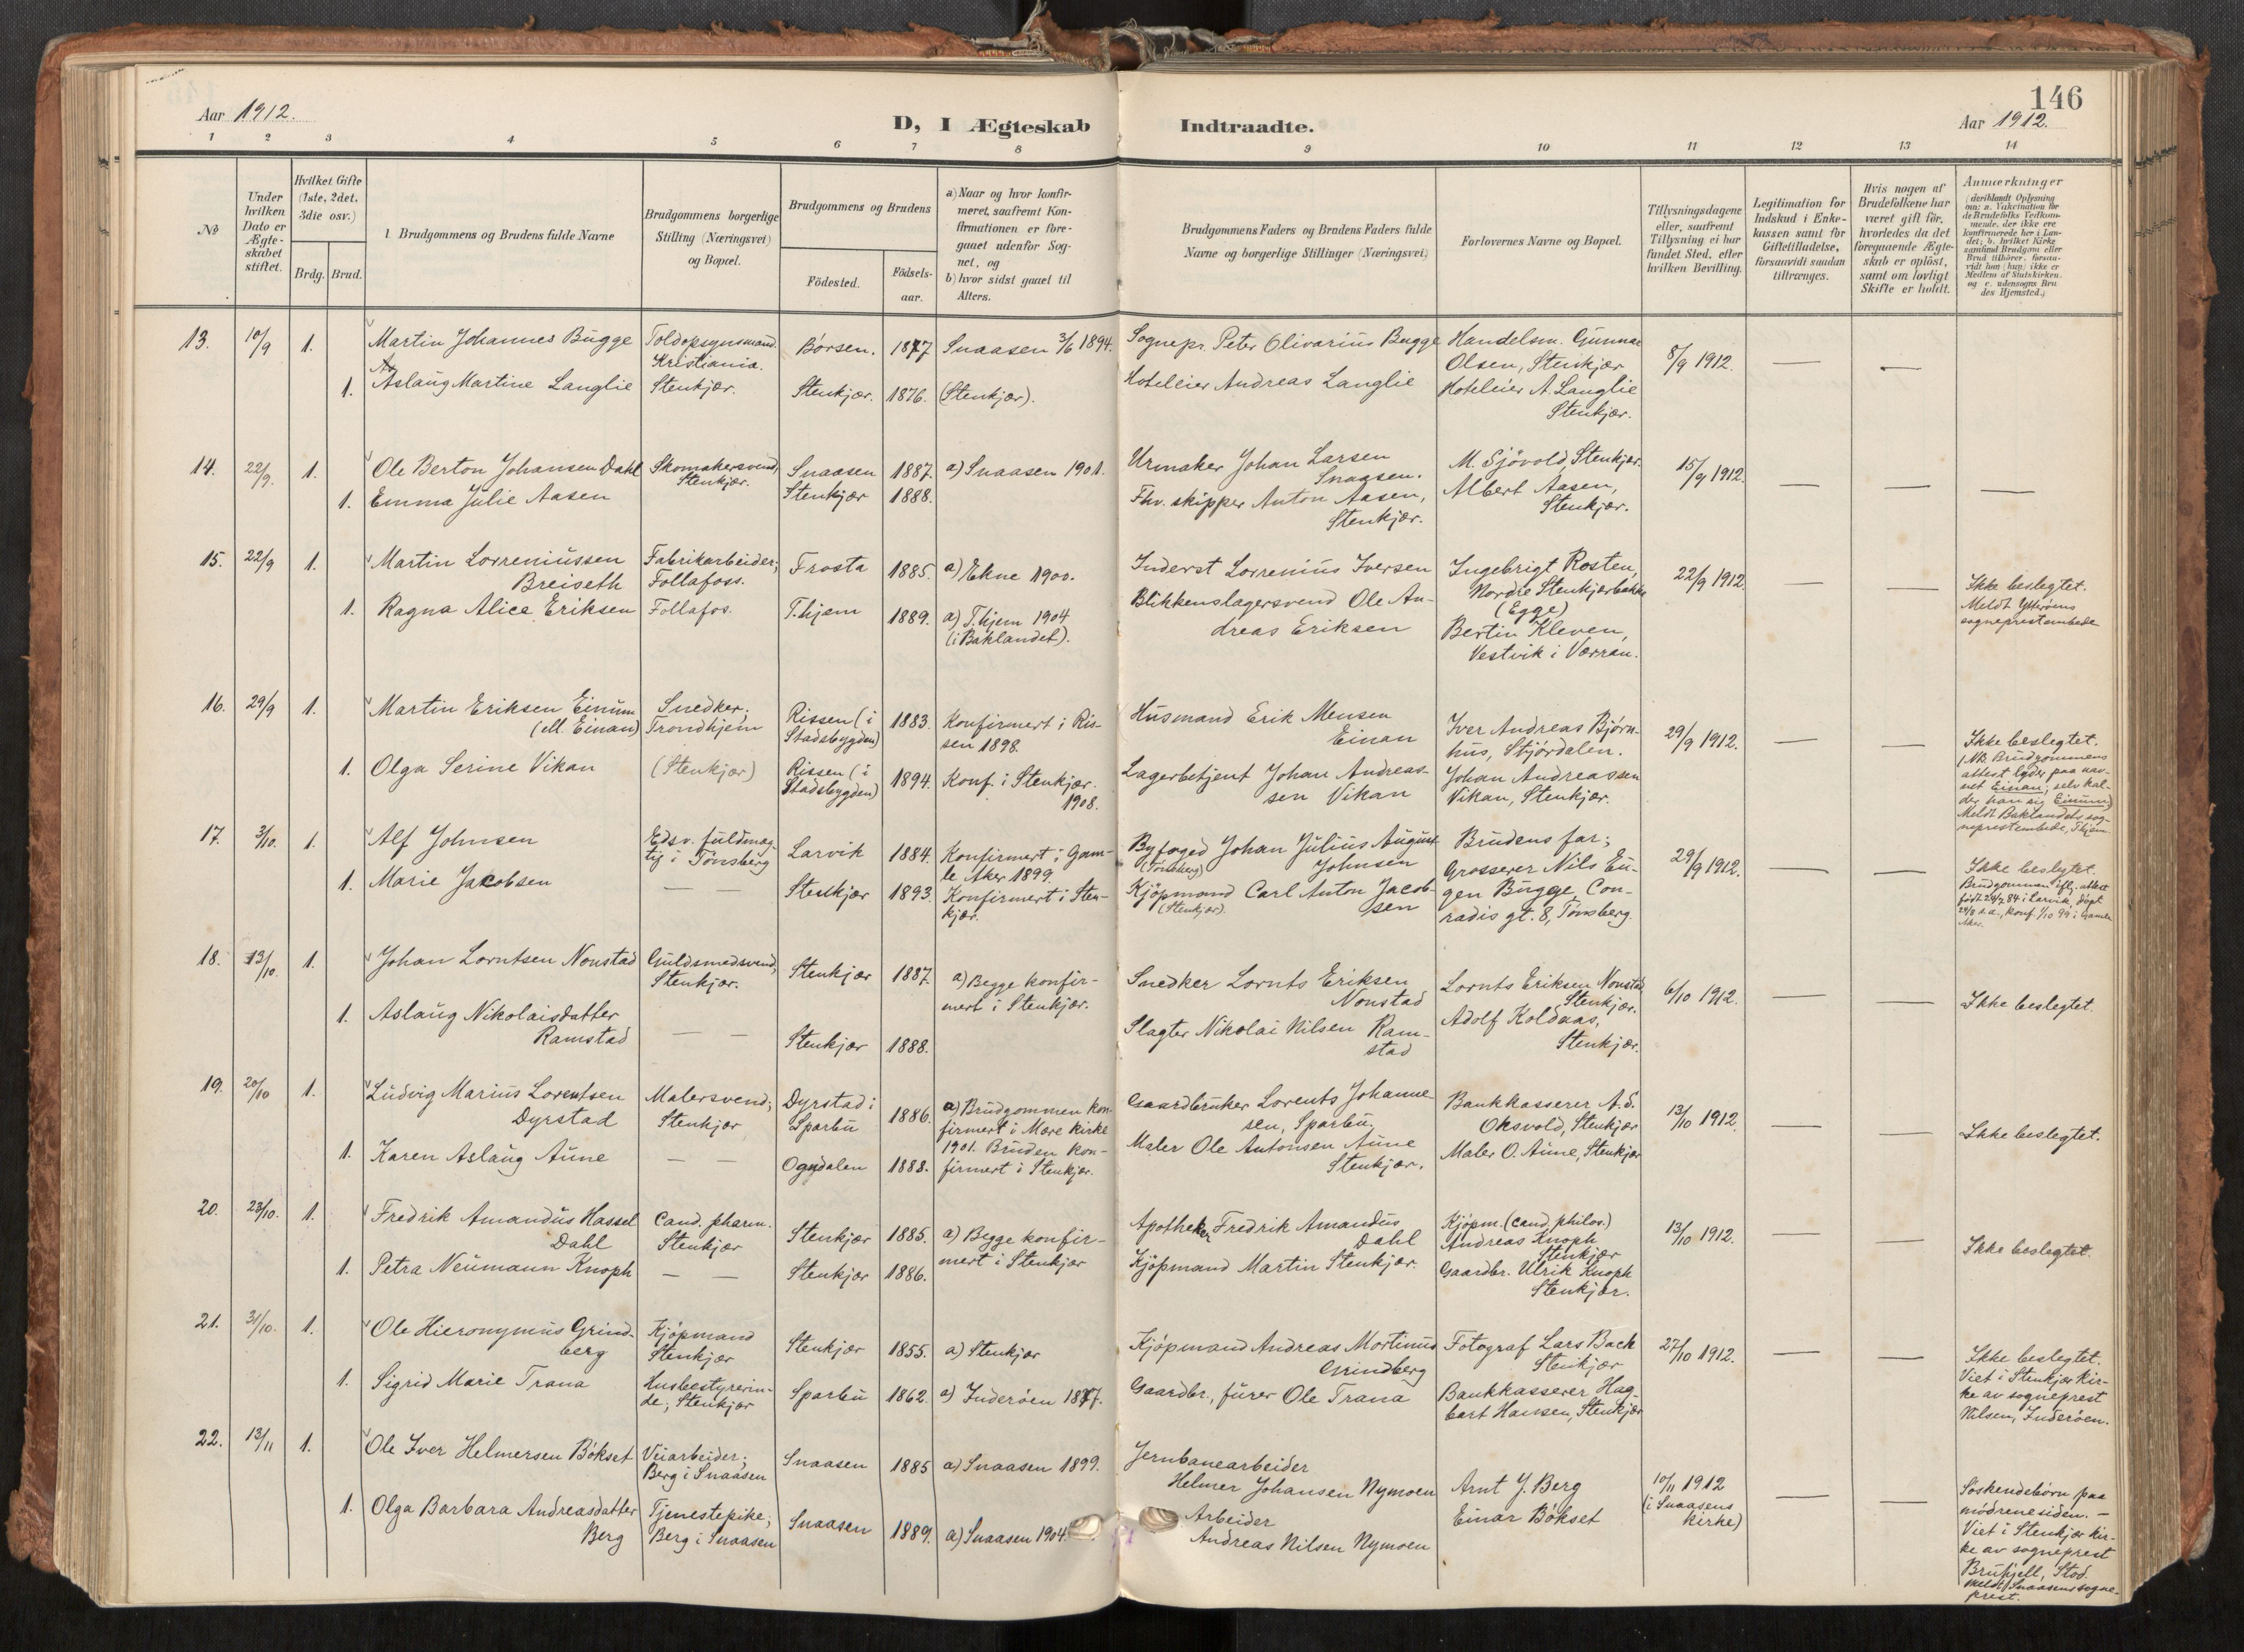 146
Aar 1912.
D, I Ægteskab Indtraadte.
Aar 1912.
1 2 3 4 5 6 7 8 9 10 11 12 13 14
No
Under
hvilken
Dato er
Ægte-
skabet
stiftet.
Hvilket Gifte
(1ste, 2det,
3die osv.)
Brdg. Brud.
Brudgommens og Brudens fulde Navne
Brudgommens borgerlige
Stilling (Næringsvei)
og Bopæl.
Brudgommens og Brudens
Födested.
Födsels-
aar.
a) Naar og hvor konfir-
meret, saafremt Kon-
firmationen er fore-
gaaet udenfor Sog-
net, og
b) hvor sidst gaaet til
Alters.
Brudgommens Faders og Brudens Faders fulde
Navne og borgerlige Stillinger (Næringsvei)
Forlovernes Navne og Bopæl.
Tillysningsdagene
eller, saafremt
Tillysning ei har
fundet Sted, efter
hvilken Bevilling.
Legitimation for
Indskud i Enke-
kassen samt for
Giftetilladelse,
forsaavidt saadan
tiltrænges.
Hvis nogen af
Brudefolkene har
været gift før,
hvorledes da det
foregaaende Ægte-
skab er oplöst,
samt om lovligt
Skifte er holdt.
Anmærkninger
(deriblandt Oplysning
om: a. Vakcination for
de Brudefolks Vedkom-
mende, der ikke ere
konfirmerede her i Lan-
det; b. hvilket Kirke
samfund Brudgom eller
Brud tilhörer, forsaa-
vidt han (hun) ikke er
Medlem af Statskirken.
og c. udensogns Bru
des Hjemsted.)
13. 10/9 1. Martin Johannes Bugge
Toldopsynsmand
Kristiania.
Börsen. 1877 Snaasen 3/6 1894.
Sognepr. Peter Olivarius Bugge
Handelsm. Gunnar
Olsen, Stenkjær
8/9 1912. — —
1. Aslaug Martine Langlie
Stenkjær.
Stenkjær. 1876. (Stenkjær).
Hoteleier Andreas Langlie
Hoteleier A. Langlie
Stenkjær.
14. 22/9. 1. Ole Berton Johansen Dahl
Skomakersvend,
Stenkjær.
Snaasen 1887. a) Snaasen 1901.
Urmaker Johan Larsen
Snaasen.
M. Sjövold, Stenkjær.
15/9 1912. — — —
1. Emma Julie Aasen
Stenkjær 1888.
Fhv. skipper Anton Aasen,
Stenkjær.
Albert Aasen,
Stenkjær.
15. 22/9 1. Martin Lorreniussen
Breiseth
Fabrikarbeider;
Follafoss.
Frosta 1885. a) Ekne 1900.
Inderst Lorrenius Iversen
Ingebrigt Rosten,
Nordre Stenkjærbakke
(Egge)
22/9 1912. — —
Ikke beslegtet.
Meldt Ytterøens
sogneprestembede
1. Ragna Alice Eriksen
Follafos.
T.hjem 1889. a) T.hjem 1904
(i Baklandet).
Blikkenslagersvend Ole An-
dreas Eriksen
Bertin Kleven,
Vestvik i Værran.
16. 29/9 1. Martin Eriksen Einum
(ell. Einan)
Snedker.
Trondhjem
Rissen (i
Stadsbygden)
1883. Konfirmert i Ris-
sen 1898.
Husmand Erik Mensen
Einan
Iver Andreas Bjørn-
hus, Stjördalen.
29/9 1912. — —
Ikke beslegtet.
(NB. Brudgommens
attest lyder paa nav-
net Einan; selv kal-
der han sig Einum)
Meldt Baklandets sog-
neprestembede, T.hjem
1. Olga Serine Vikan
(Stenkjær)
Rissen (i
Stadsbygden)
1894. Konf. i Stenkjær.
1908.
Lagerbetjent Johan Andreas-
sen Vikan
Johan Andreassen
Vikan, Stenkjær.
17. 3/10. 1. Alf Johnsen
Edsv. fuldmæg-
tig i Tönsberg
Larvik 1884. Konfirmert i Gam-
le Aker 1899
Byfoged Johan Julius August
(Tönsberg) Johnsen
Brudens far;
Grosserer Nils Eu-
gen Bugge, Con-
radis gt. 8, Tönsberg.
29/9 1912. — —
Ikke beslegtet.
Brudgommen iflg. attest
født 24/7 84 i Larvik, döpt
24/8 s.a., konf. 1/10 99 i Gamle
Aker.
1. Marie Jacobsen
— —
Stenkjær 1893. Konfirmert i Sten-
kjær.
Kjöpmand Carl Anton Jacob-
(Stenkjær). sen
18. 13/10. 1. Johan Lorntsen Nonstad
Guldsmedsvend,
Stenkjær.
Stenkjær 1887. a) Begge konfir-
mert i Stenkjær.
Snedker Lornts Eriksen
Nonstad
Lornts Eriksen Nonstad
Stenkjær.
6/10 1912. — —
Ikke beslegtet.
1. Aslaug Nikolaisdatter
Ramstad
— —
Stenkjær 1888.
Slagter Nikolai Nilsen Ram-
stad
Adolf Koldaas,
Stenkjær.
19. 20/10 1. Ludvig Marius Lorentsen
Dyrstad
Malersvend;
Stenkjær
Dyrstad i
Sparbu
1886. a) Brudgommen kon-
firmert i Mære kirke
1901. Bruden kon-
firmert i Stenkjær.
Gaardbruker Lorents Johanne
sen, Sparbu.
Bankkasserer A.S.
Oksvold, Stenkjær
13/10 1912. — —
Ikke beslegtet.
1. Karen Aslaug Aune
— —
Ogndalen 1888.
Maler Ole Antonsen Aune
Stenkjær.
Maler O. Aune, Stenkjær
20. 23/10. 1. Fredrik Amandus Hassel
Dahl
Cand. pharm.
Stenkjær
Stenkjær 1885. a) Begge konfir-
mert i Stenkjær
Apotheker Fredrik Amandus
Dahl
Kjöpm. (cand. philos.)
Andreas Knoph
Stenkjær
13/10 1912. — —
Ikke beslegtet.
1. Petra Neumann Knoph
— —
Stenkjær 1886.
Kjöpmand Martin Stenkjær.
Gaardbr. Ulrik Knoph
Stenkjær.
21. 31/10. 1. Ole Hieronymus Grind-
berg
Kjöpmand
Stenkjær
Stenkjær 1855. a) Stenkjær
Kjöpmand Andreas Mortinus
Grindberg
Fotograf Lars Bach
Stenkjær
27/10 1912. — —
Ikke beslegtet.
Viet i Stenkjær kir-
ke av sogneprest
Nilsen, Inderöen.
1. Sigrid Marie Trana
Husbestyrerin-
de; Stenkjær
Sparbu 1862. a) Inderöen 1877.
Gaardbr., furer Ole Trana
Bankkasserer Hag-
bart Hansen, Stenkjær
22. 13/11 1. Ole Iver Helmersen Bökset
Veiarbeider;
Berg i Snaasen
Snaasen 1885 a) Snaasen 1899.
Jernbanearbeider
Helmer Johansen Nymoen
Arnt J. Berg
10/11 1912
(i Snaasens
kirke)
— —
Søskendebörn paa
mødrenesiden. —
Viet i Stenkjær kir-
ke av sogneprest
Brufjell, Stod.
Meldt Snaasens sogne-
prest.
1. Olga Barbara Andreasdatter
Berg
Tjenestepike;
Berg i Snaasen
Snaasen 1889. a) Snaasen 1904.
Arbeider
Andreas Nilsen Nymoen
Einar Bökset